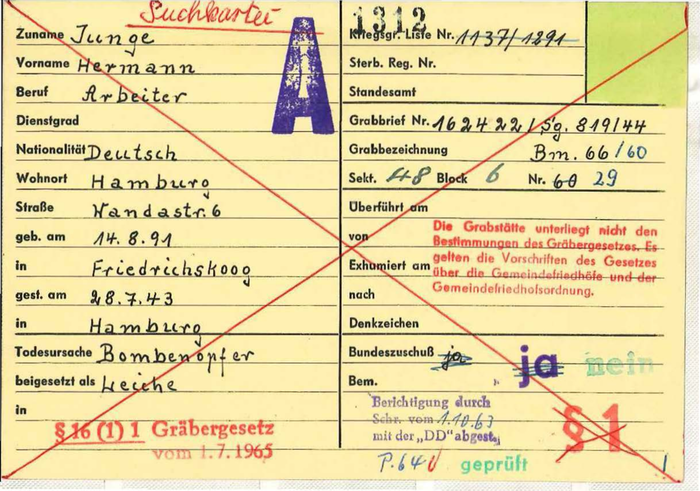 Suchkartei
Zuname Junge
Vorname Hermann
Beruf Arbeiter
Dienstgrad
Nationalität Deutsch
Wohnort Hamburg
Straße Wandastr. 6
geb. am 14.8.91
in Friedrichskoog
gest. am 28.7.43
in Hamburg
Todesursache Bombenopfer
beigesetzt als Leiche
in
§ 16 (1) 1 Gräbergesetz
vom 1.7.1965
A
1312
Kriegsgr. Liste Nr. 1137/1291
Sterb. Reg. Nr.
Standesamt
Grabbrief Nr. 162422/Sg. 819/44
Grabbezeichnung Bm. 66/60
Sekt. 48 Block 6 Nr. 60 29
Überführt am
von
Exhumiert am
nach
Die Grabstätte unterliegt nicht den
Bestimmungen des Gräbergesetzes. Es
gelten die Vorschriften des Gesetzes
über die Gemeindefriedhöfe und der
Gemeindefriedhofsordnung.
Denkzeichen
Bundeszuschuß ja ja nein
Bem.
Berichtigung durch
Schr. vom 1.10.63
mit der „DD" abgest.
P.64 geprüft
§ 1